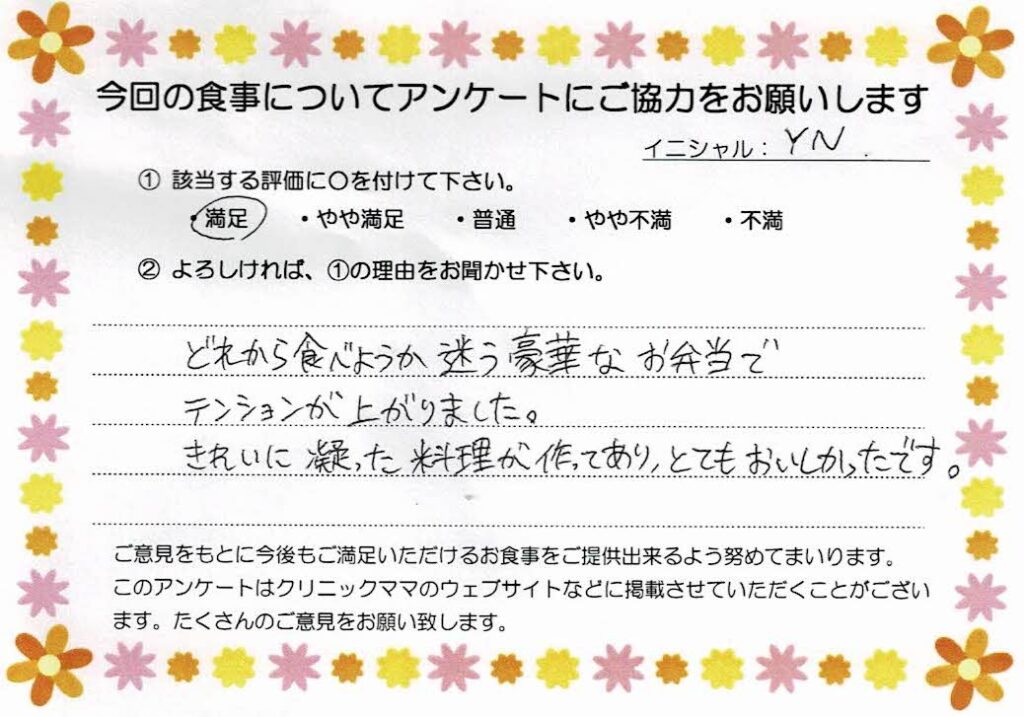 今回の食事についてアンケートにご協力をお願いします
イニシャル：YN
① 該当する評価に〇を付けて下さい。
・満足 ・やや満足 ・普通 ・やや不満 ・不満
② よろしければ、①の理由をお聞かせ下さい。
どれから食べようか迷う豪華なお弁当で
テンションが上がりました。
きれいに凝った料理が作ってあり、とてもおいしかったです。
ご意見をもとに今後もご満足いただけるお食事をご提供出来るよう努めてまいります。
このアンケートはクリニックママのウェブサイトなどに掲載させていただくことがござい
ます。たくさんのご意見をお願い致します。